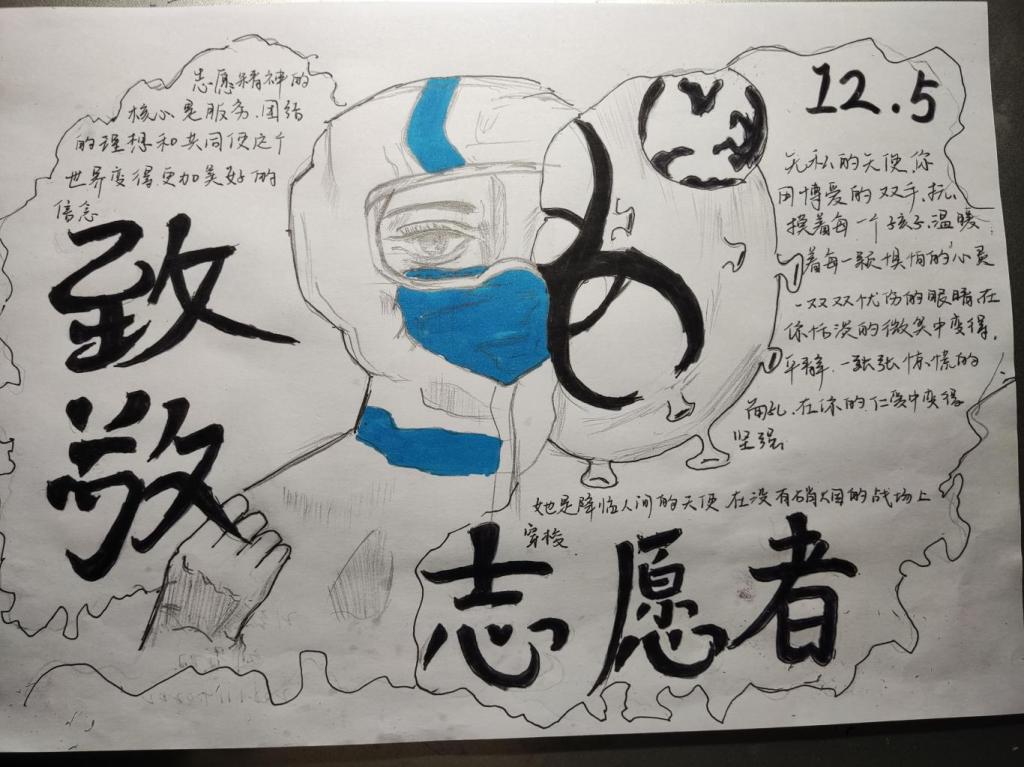 志愿精神的
核心是服务.团结
的理想和共同使这个
世界变得更加美好的
信念
致
敬
12.5
无私的天使,你
用博爱的双手,抚
摸着每一个孩子.温暖
着每一颗惧怕的心灵
一双双忧伤的眼睛在
你恬淡的微笑中变得,
平静.一张张惊慌的
面孔.在你的仁爱中变得
坚强
她是降临人间的天使.在没有硝烟的战场上
穿梭.
志愿者